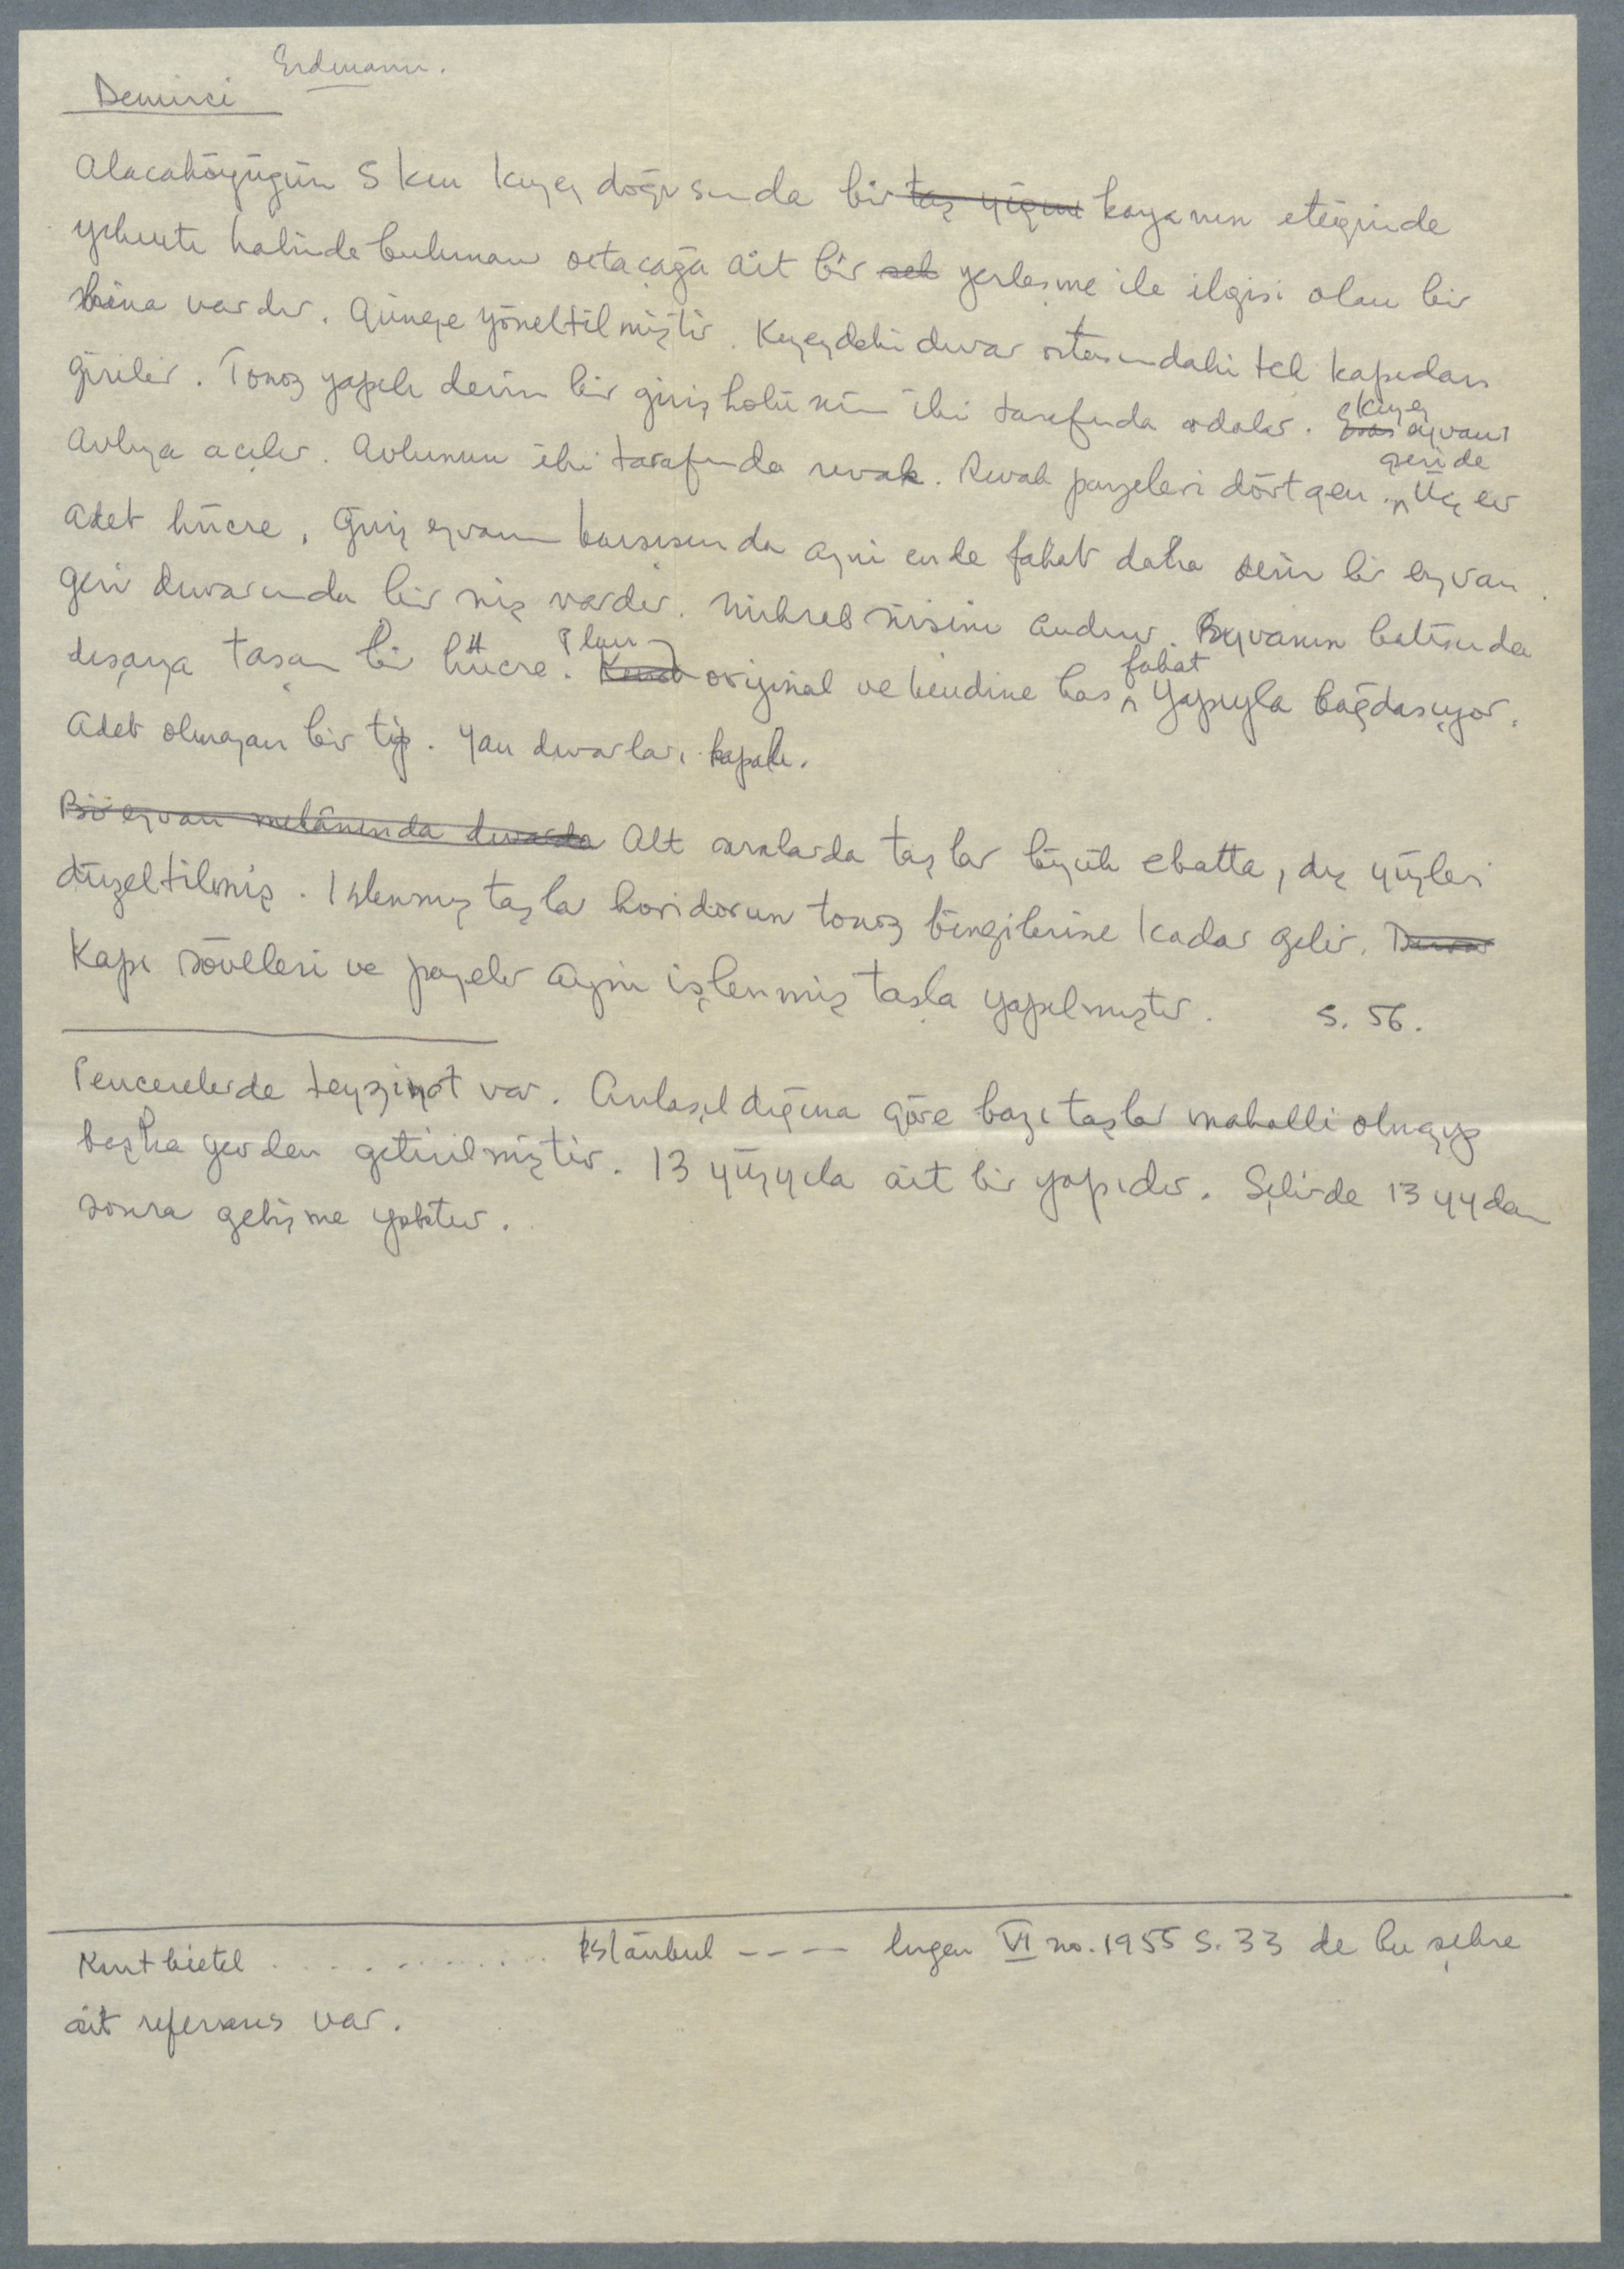 Erdmann.
Demirci
Alacahöyüğün 5 km kuzey doğusunda bir taş yığını kayanın eteğinde
yıkıntı halinde bulunan ortaçağa ait bir yerleşme ile ilgisi olan bir
bina vardır. Güneye yöneltilmiştir. Kuzeydeki duvar ortasındaki tek kapıdan
girilir. Tonoz yapılı derin bir giriş holünün iki tarafında odalar. Esas kuzey eyvanı
Avluya açılır. Avlunun iki tarafında revak. Revak payeleri dörtgen. geride Üçer
adet hücre. Giriş eyvanı karşısında aynı ende fakat daha derin bir eyvan.
geri duvarında bir niş vardır. Mihrab nişini andırır. Eyvanın batısında
dışarıya taşan bir hücre. Plan orijinal ve kendine has fakat yapıyla bağdaşıyor.
Adet olmayan bir tip. Yan duvarları kapalı.
Bu eyvan mekânında duvarda Alt sıralarda taşlar büyük ebatta, dış yüzleri
düzeltilmiş. İşlenmiş taşlar koridorun tonoz üzengilerine kadar gelir. Duvar
Kapı söveleri ve payeler aynı işlenmiş taşla yapılmıştır. S. 56.
Pencerelerde tezyinat var. Anlaşıldığına göre bazı taşlar mahalli olmayıp
başka yerden getirilmiştir. 13 yüzyıla ait bir yapıdır. Şehirde 13 yydan
sonra gelişme yoktur.
Kurt Bittel ............ Istanbul ---- lungen VI no. 1955 S. 33 de bu şehre
ait referans var.